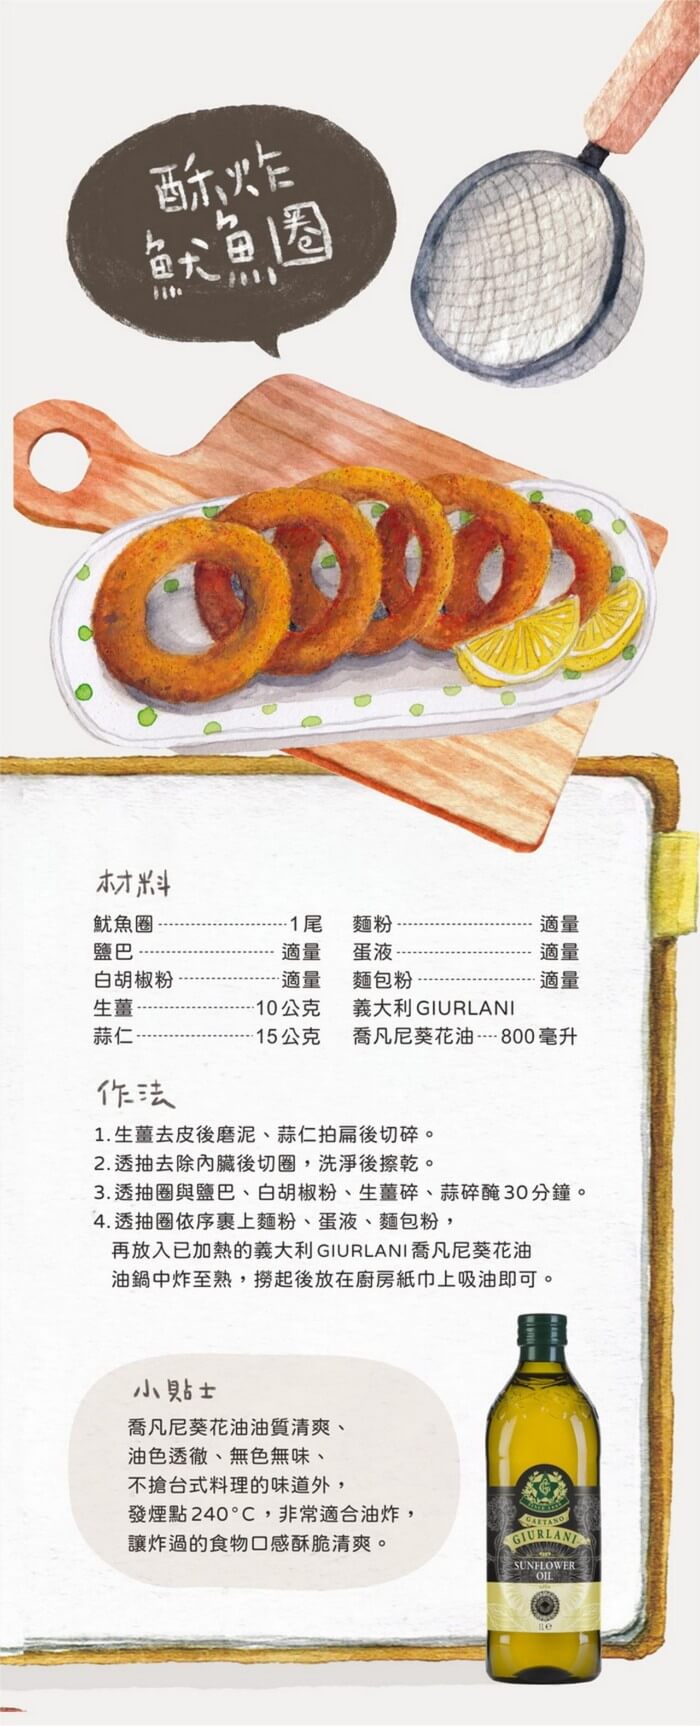 酥炸
魷魚圈
材料
魷魚圈 1尾
鹽巴 適量
白胡椒粉 適量
生薑 10公克
蒜仁 15公克
麵粉 適量
蛋液 適量
麵包粉 適量
義大利GIURLANI
喬凡尼葵花油 800毫升
作法
1.生薑去皮後磨泥、蒜仁拍扁後切碎。
2.透抽去除內臟後切圈,洗淨後擦乾。
3.透抽圈與鹽巴、白胡椒粉、生薑碎、蒜碎醃30分鐘。
4.透抽圈依序裹上麵粉、蛋液、麵包粉,
再放入已加熱的義大利GIURLANI喬凡尼葵花油
油鍋中炸至熟,撈起後放在廚房紙巾上吸油即可。
小貼士
喬凡尼葵花油油質清爽、
油色透徹、無色無味、
不搶台式料理的味道外,
發煙點240°C,非常適合油炸,
讓炸過的食物口感酥脆清爽。
GAETANO
GIURLANI
SUNFLOWER
OIL
1L e